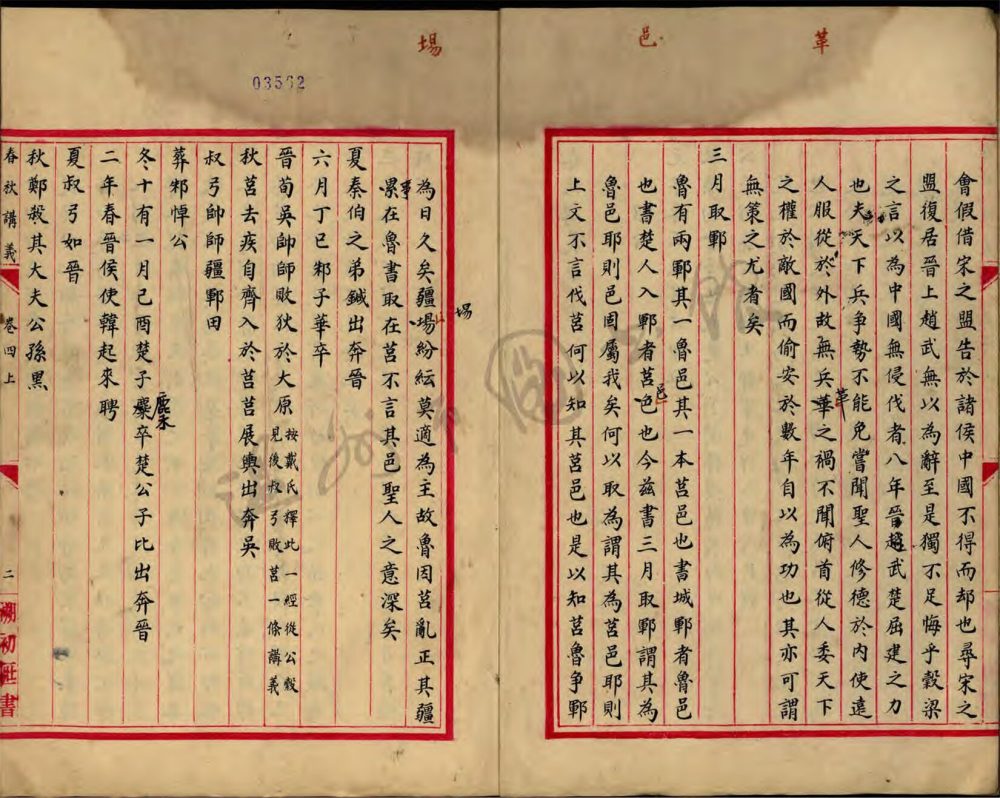 革
邑
會假借宋之盟告於諸侯中國不得而却也尋宋之
盟復居晉上趙武無以為辭至是獨不足悔乎穀梁
之言以為中國無侵伐者八年晉趙武楚屈建之力
也夫天下兵争勢不能免嘗聞聖人修德於內使遠
人服從於外故無兵華之禍不聞俯首從人委天下
革
之權於敵國而偷安於數年自以為功也其亦可謂
無策之尤者矣
三月取鄆
魯有兩鄆其一魯邑其一本莒邑也書城鄆者魯邑
也書楚人入鄆者莒色也今兹書三月取鄆謂其為
邑
魯邑耶則邑固屬我矣何以取為謂其為莒邑耶則
上文不言伐莒何以知其莒邑也是以知莒魯争鄆
場
03562
為日久矣疆場紛紜莫適為主故魯因莒亂正其疆
場
事
累在魯書取在莒不言其邑聖人之意深矣
夏秦伯之弟鍼出奔晉
六月丁巳邾子華卒
晉荀吳帥師敗狄於大原按戴氏釋此一經從公穀
見後叔弓敗莒一條講義
秋莒去疾自齊入於莒莒展輿出奔吳
叔弓帥師疆鄆田
葬邾悼公
冬十有一月己酉楚子麋卒楚公子比出奔晉
二年春晉侯使韓起來聘
夏叔弓如晉
秋鄭殺其大夫公孫黑
春秋講義 卷四上 二 湖初莊書